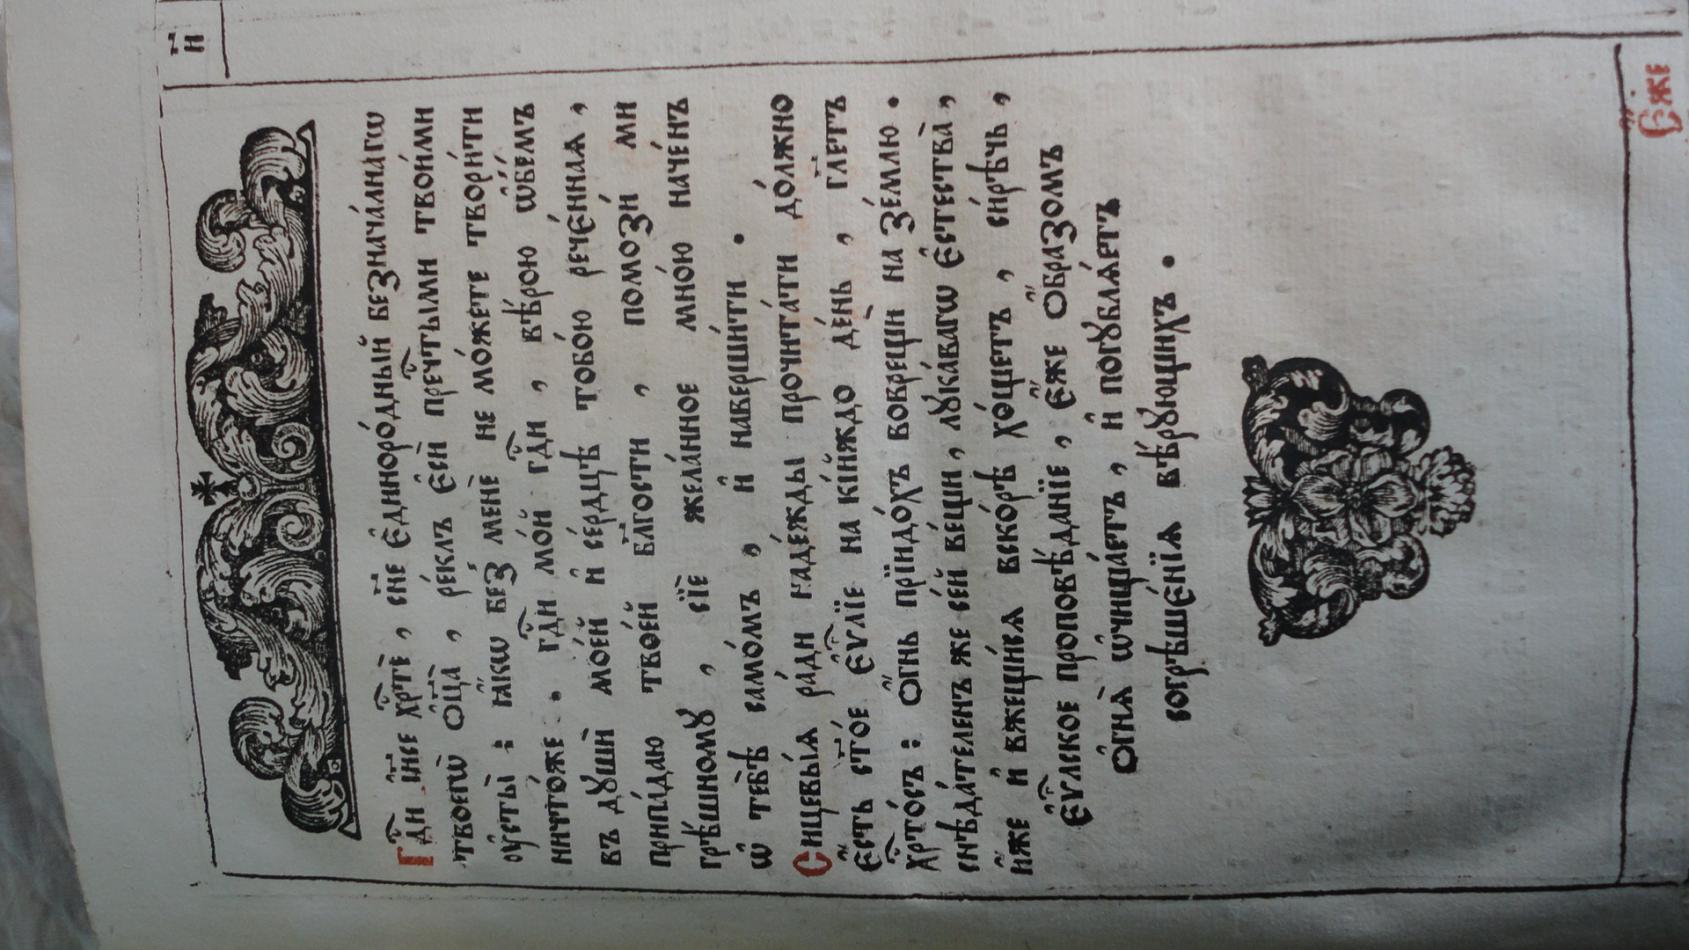 н҃і
Гдⷭ҇и і҆и҃се хрⷭ҇тѐ , сн҃е є҆диноро́дный безнача́лнагѡ
твоегѡ̀ ѻ҆ц҃а̀ , ре́клъ є҆сѝ пречⷭ҇тыми твои́ми
оу҆сты̀ : ꙗ҆́кѡ без̾ менѐ не мо́жете твори́ти
ничто́же . гдⷭ҇и мо́й гдⷭ҇и , вѣ́рою ѡ҆б̾е́мъ
въ дꙋшѝ мое́й и҆ се́рдцѣ тобо́ю рече́ннаѧ ,
припа́даю твое́й бл҃гости , помозѝ ми
грѣ́шномꙋ , сїѐ жела́нное мно́ю наче́нъ
ѡ҆ тебѣ̀ само́мъ , и҆ наверши́ти .
Сицевы́ѧ ра́ди наде́жды прочита́ти до́лжно
є҆́сть ст҃о́е є҆ѵⷢ҇лїе на кі́йждо де́нь , гл҃етъ
хрⷭ҇то́съ : ѻ҆́гнь прїидо́хъ воврещи на зе́млю .
снѣда́теленъ же се́й ве́щи , лꙋка́вагѡ є҆стества̀ ,
и҆́же и҆ вжещи́сѧ вско́рѣ хо́щетъ , си́рѣчь ,
є҆ѵⷢ҇лское проповѣ́данїе , є҆́же ѻ҆́бразомъ
ѻ҆гнѧ̀ ѡ҆чища́етъ , и҆ погꙋблѧ́етъ
согрѣше́нїѧ вѣ́рꙋющихъ .
Є҆́же